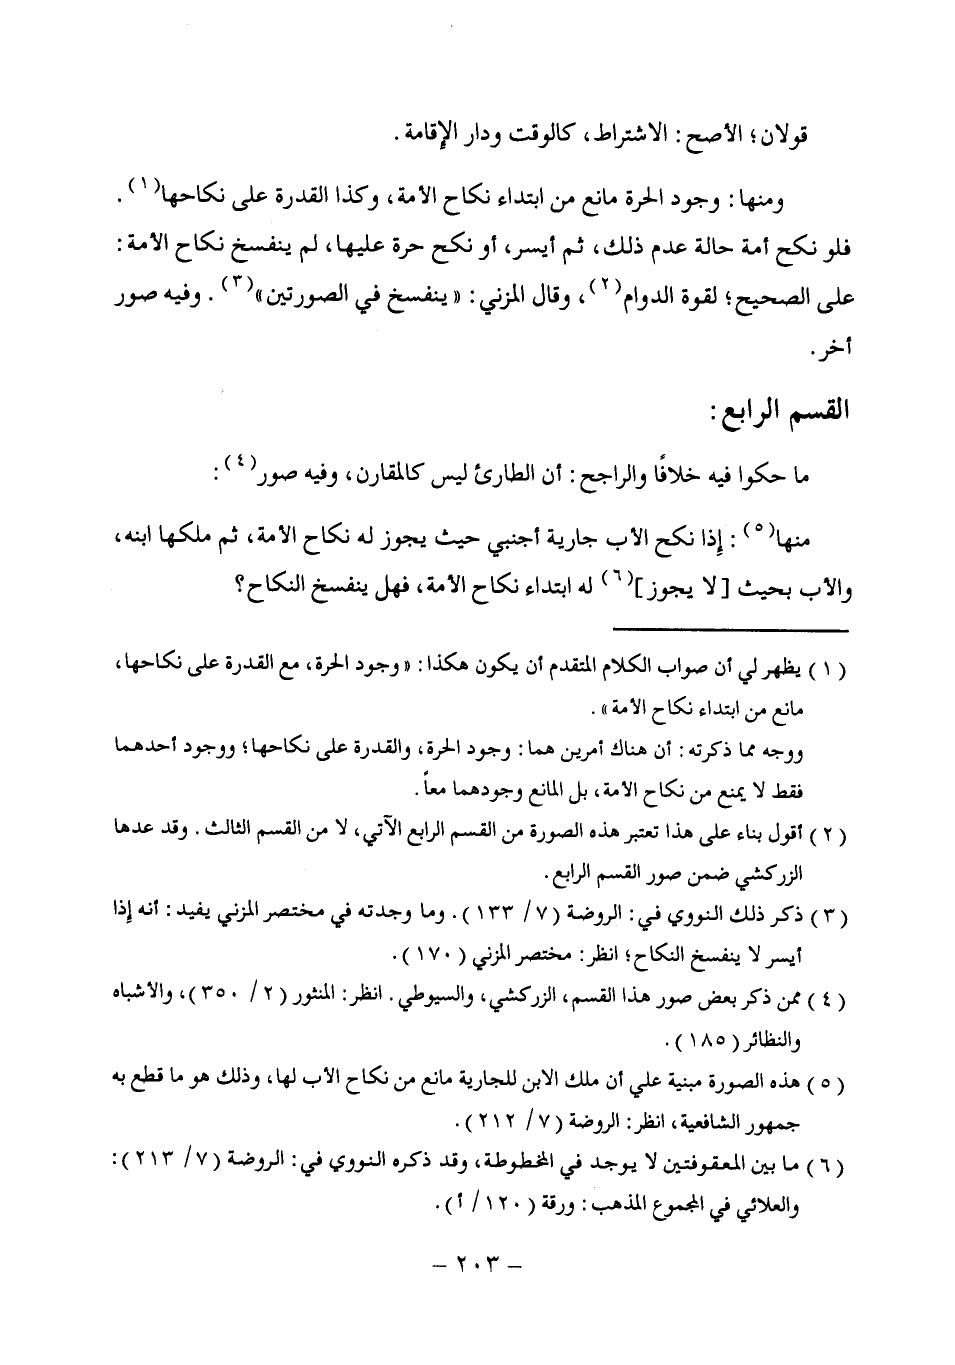 قولان؛ الأصح: الاشتراط، كالوقت ودار الإقامة.
ومنها: وجود الحرة مانع من ابتداء نكاح الأمة، وكذا القدرة على نكاحها(١).
فلو نكح أمة حالة عدم ذلك، ثم أيسر، أو نكح حرة عليها، لم ينفسخ نكاح الأمة:
على الصحيح؛ لقوة الدوام(٢)، وقال المزني: «ينفسخ في الصورتين»(٣). وفيه صور
أخر.
القسم الرابع:
ما حكوا فيه خلافًا والراجح: أن الطارئ ليس كالمقارن، وفيه صور(٤):
منها(٥): إذا نكح الأب جارية أجنبي حيث يجوز له نكاح الأمة، ثم ملكها ابنه،
والأب بحيث [لا يجوز](٦) له ابتداء نكاح الأمة، فهل ينفسخ النكاح؟
(١) يظهر لي أن صواب الكلام المتقدم أن يكون هكذا: «وجود الحرة، مع القدرة على نكاحها،
مانع من ابتداء نكاح الأمة».
ووجه مما ذكرته: أن هناك أمرين هما: وجود الحرة، والقدرة على نكاحها؛ ووجود أحدهما
فقط لا يمنع من نكاح الأمة، بل المانع وجودهما معاً.
(٢) أقول بناء على هذا تعتبر هذه الصورة من القسم الرابع الآتي، لا من القسم الثالث. وقد عدها
الزركشي ضمن صور القسم الرابع.
(٣) ذكر ذلك النووي في: الروضة (٧/ ١٣٣). وما وجدته في مختصر المزني يفيد: أنه إذا
أيسر لا ينفسخ النكاح؛ انظر: مختصر المزني (١٧٠).
(٤) ممن ذكر بعض صور هذا القسم، الزركشي، والسيوطي. انظر: المنثور (٢/ ٣٥٠)، والأشباه
والنظائر (١٨٥).
(٥) هذه الصورة مبنية علي أن ملك الابن للجارية مانع من نكاح الأب لها، وذلك هو ما قطع به
جمهور الشافعية، انظر: الروضة (٧/ ٢١٢).
(٦) ما بين المعقوفتين لا يوجد في المخطوطة، وقد ذكره النووي في: الروضة (٧/ ٢١٣):
والعلائي في المجموع المذهب: ورقة (١٢٠/ أ).
– ٢٠٣ –